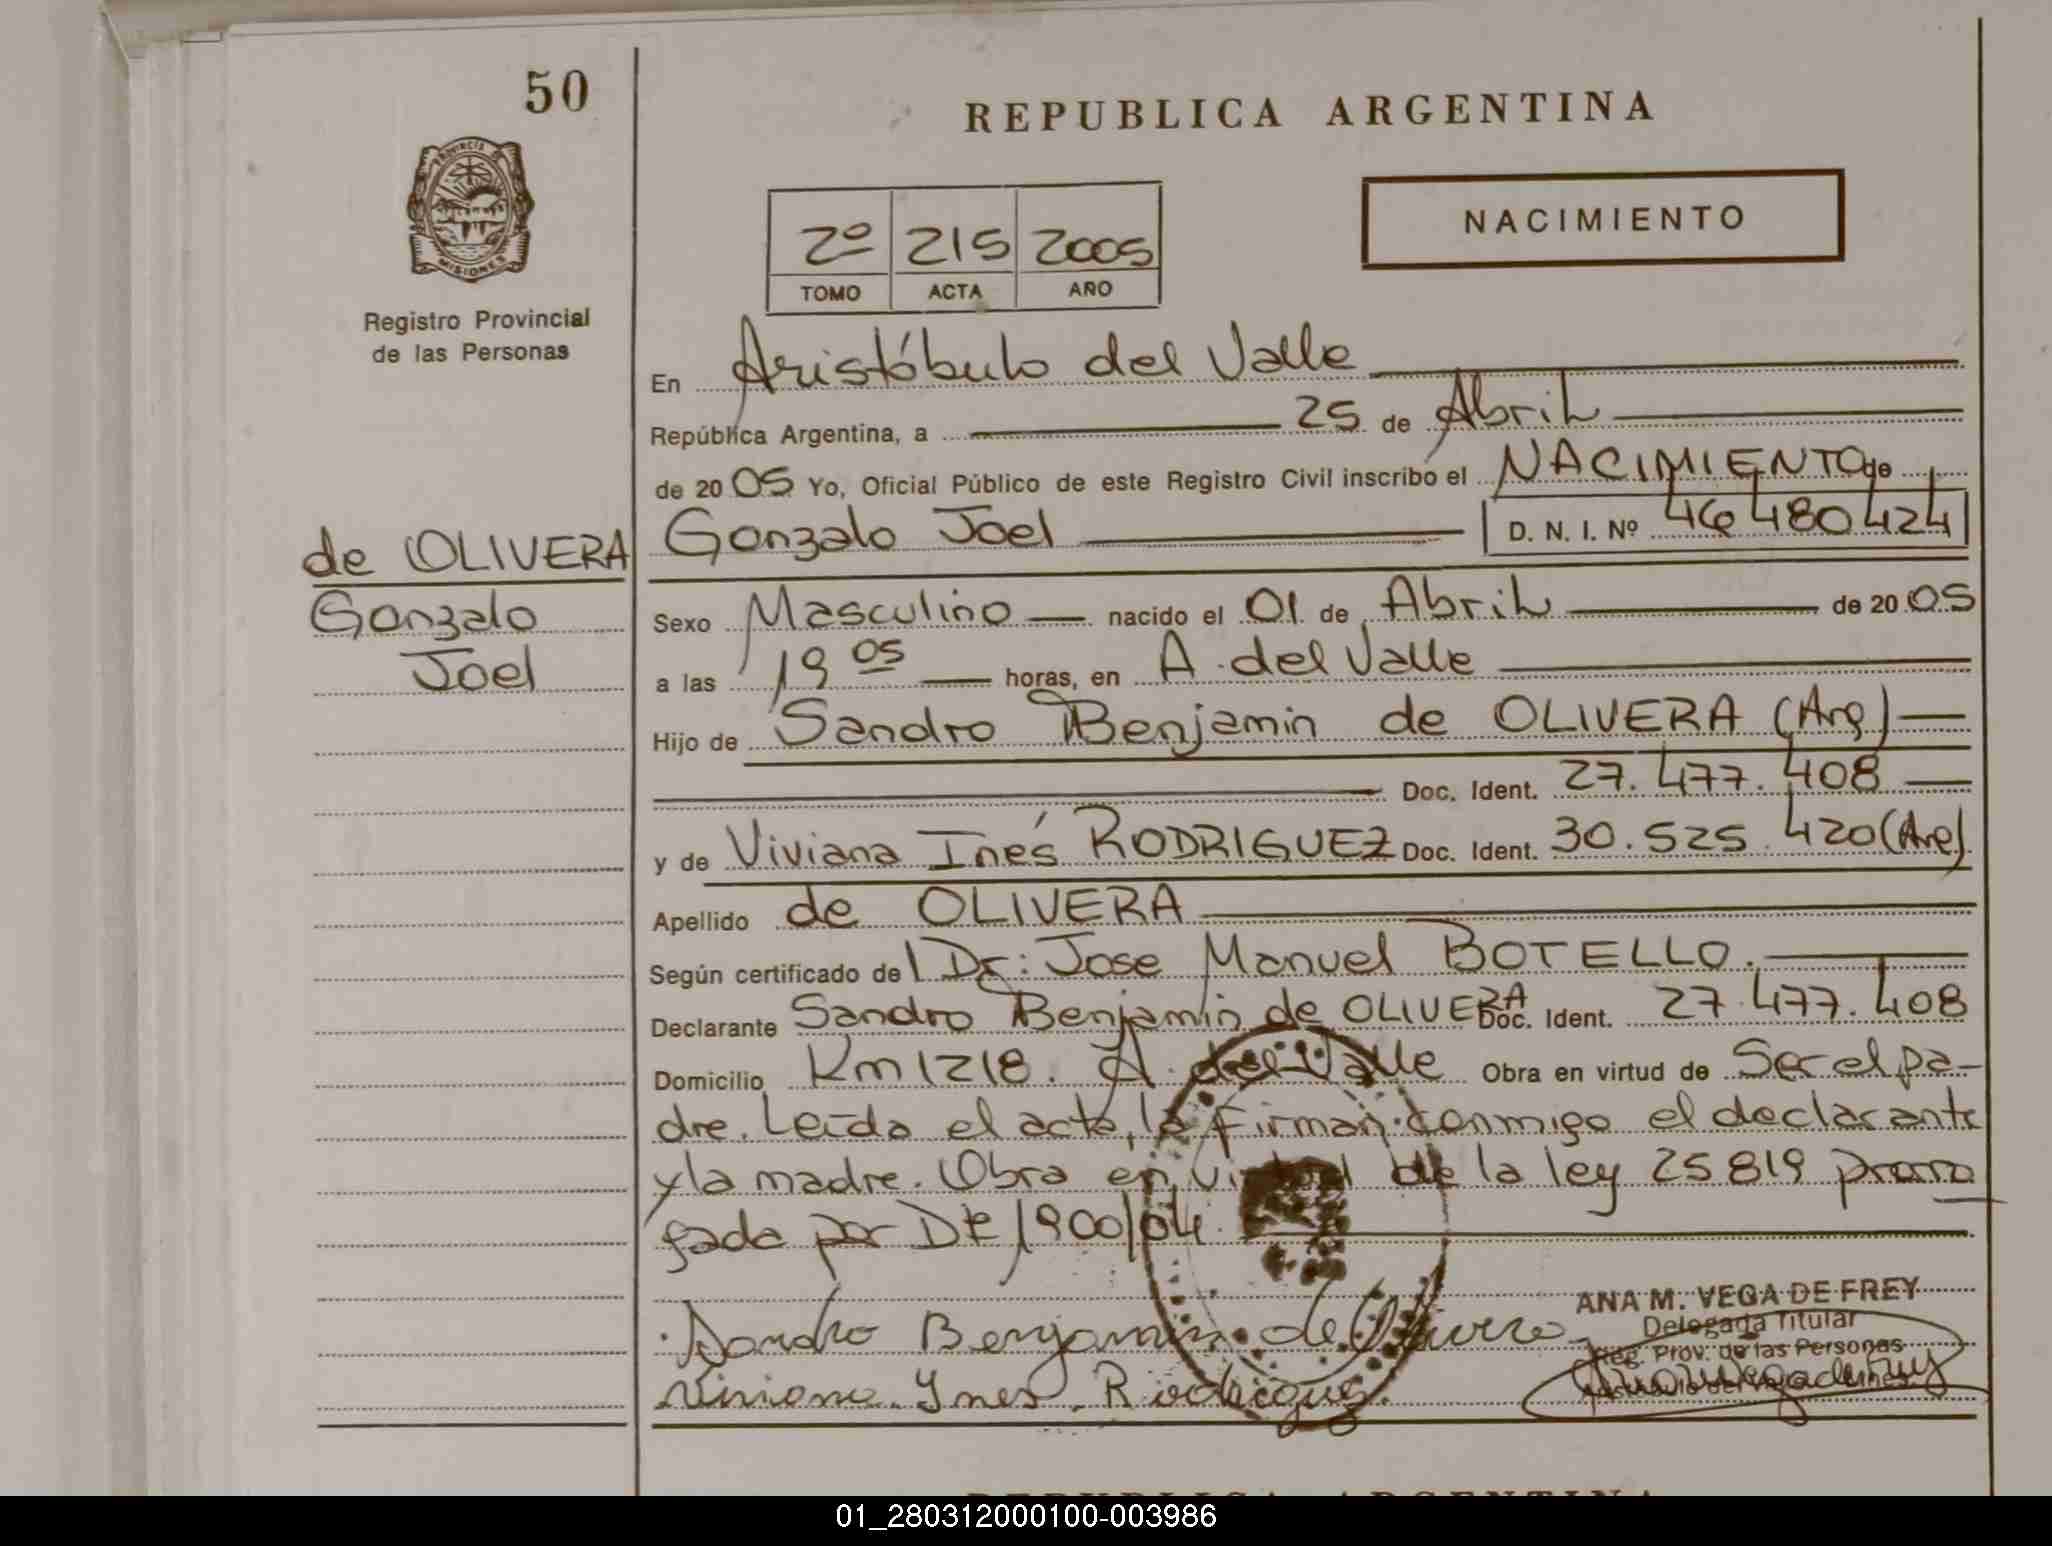 50
REPUBLICA ARGENTINA
PROVINCIA DE
MISIONES
NACIMIENTO
2º 215 2005
TOMO ACTA AÑO
Registro Provincial
de las Personas
En Aristóbulo del Valle
República Argentina, a 25 de Abril
de 2005 Yo, Oficial Público de este Registro Civil inscribo el NACIMIENTO de
de OLIVERA Gonzalo Joel D. N. I. Nº 46480424
Gonzalo
Joel
Sexo Masculino nacido el 01 de Abril de 2005
a las 19 05 horas, en A. del Valle
Hijo de Sandro Benjamin de OLIVERA (Arg)
Doc. Ident. 27.477.408
y de Viviana Inés RODRIGUEZ Doc. Ident. 30.525.420 (Arg)
Apellido de OLIVERA
Según certificado del Dr: Jose Manuel BOTELLO.
Declarante Sandro Benjamin de OLIVERA Doc. Ident. 27.477.408
Domicilio Km 1218. A. del Valle Obra en virtud de Ser el pa-
dre. Leída el acta, la firman conmigo el declarante
y la madre. Obra en virtud de la ley 25819 prorro
gada por 1900/04.
Sandro Benjamin de Olivera
Viviana Ines Rodriguez
ANA M. VEGA DE FREY
Delegada Titular
Reg. Prov. de las Personas
01_280312000100-003986